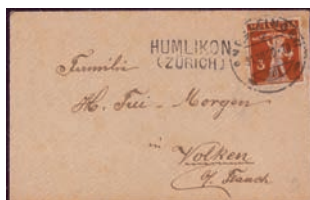 HUMLIKON
(ZÜRICH)
3
Familie
H. Frei - Morgen
in
Volken